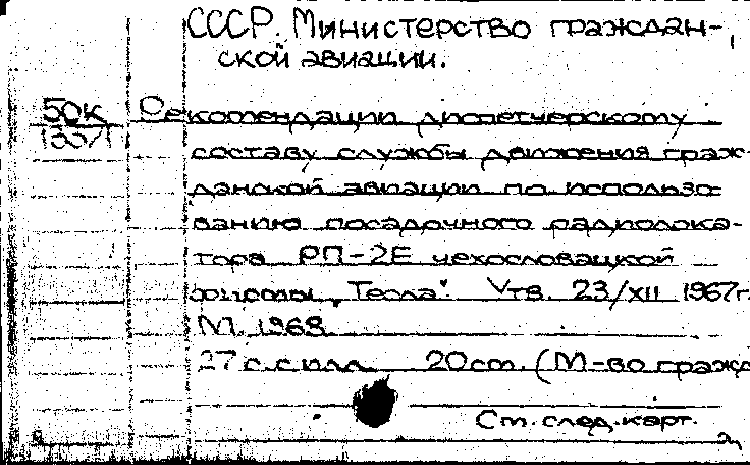 СССР. Министерство граждан-
ской авиации.
50К Рекомендации диспетчерскому
составу службы движения граж-
данской авиации по использо-
ванию посадочного радиолока-
тора РП-2Е чехословацкой
фирмы „Тесла". Утв. 23/XII 1967г.
М. 1968.
27 с. с илл. 20 cm. (М-во гражд
См. след. карт.